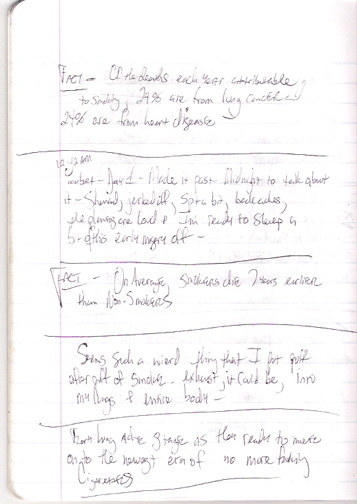 FACT - Of the deaths each year attributable
to smoking, 29% are from lung cancer &
24% are from heart disease
12:12 AM
- Day 1 - Made it past Midnight to talk about
it - Showered, jerked off, spit a bit, headaches,
the are loud & I'm ready to sleep a
bit of this early off -
FACT - On Average, smokers die 7 years earlier
than Non-Smokers
Seems such a wierd thing that I put puff
after puff of smoke - exhaust, it could be, into
my lungs & entire body -
as then ready to move
on to the newest era of no more fucking
Cigarettes